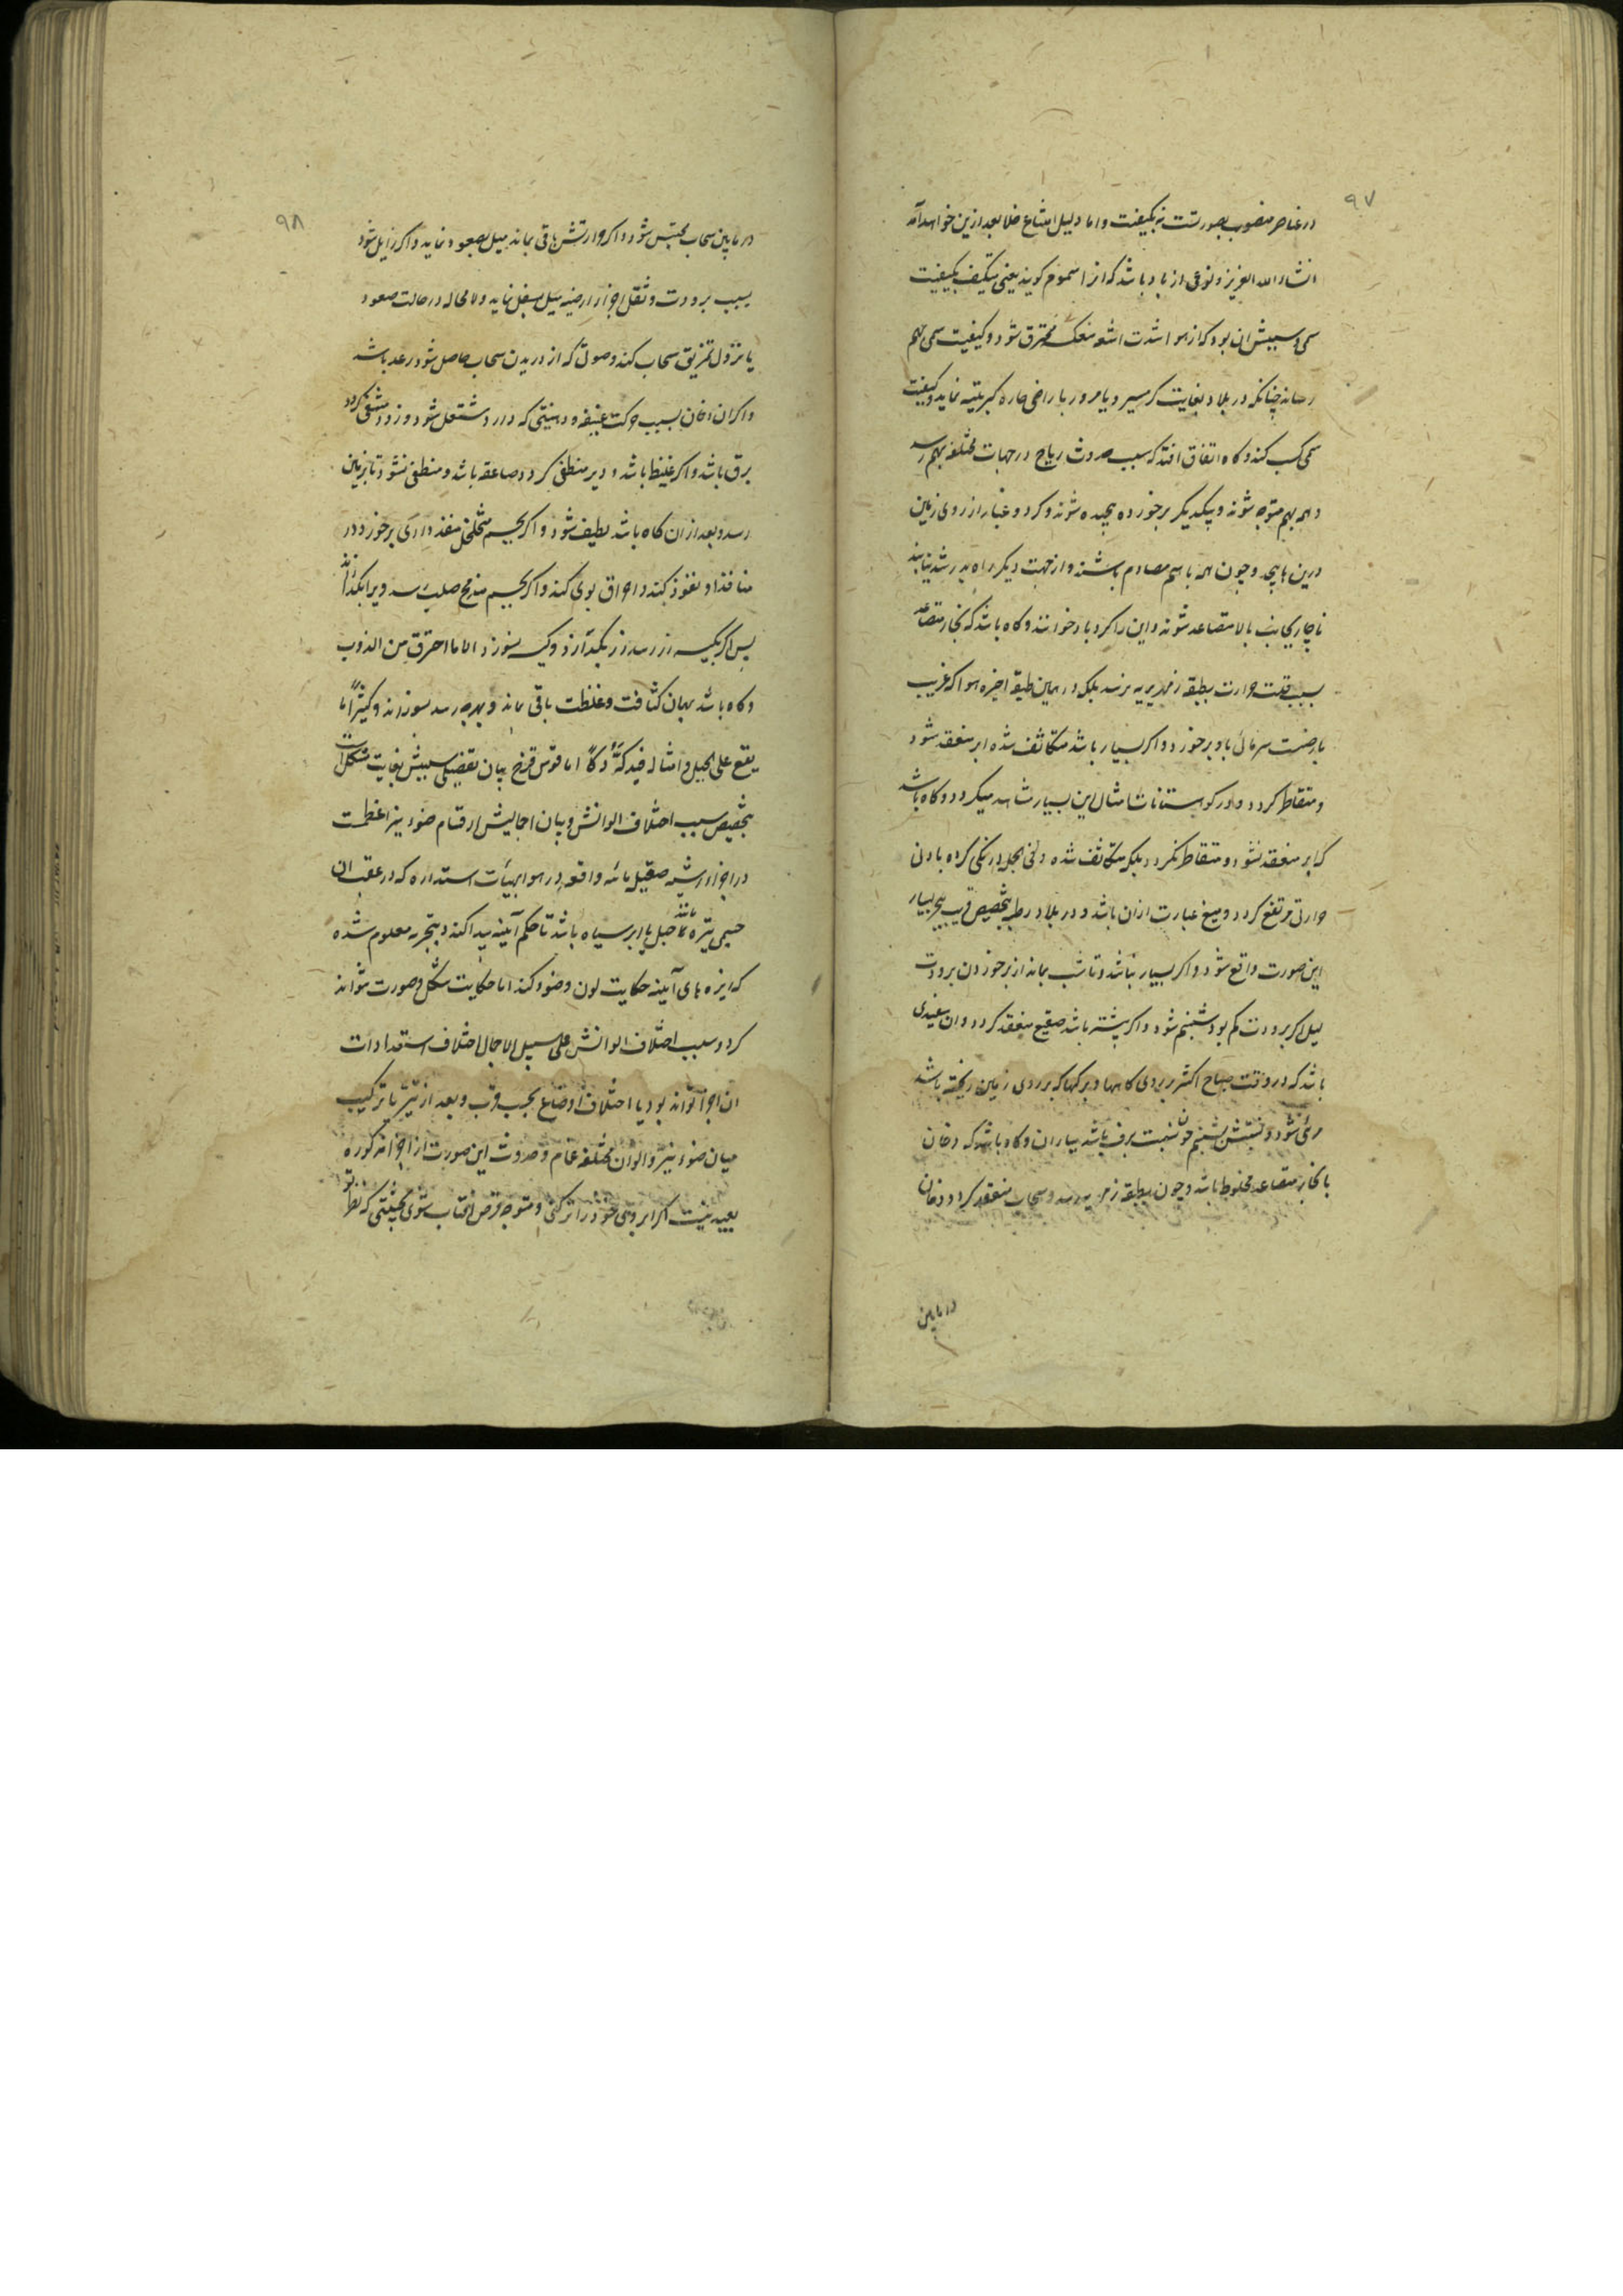 ۹۷
در عناصر منصوب بصورتست نه بکیفیت و اما دلیل امتناع خلا بعد ازین خواهد آمد
انشاء الله العزیز و نوعی از باد باشد که انرا سموم کویند یعنی متکیف بکیفیت
سمی و سببش ان بود که از هوا شدت اشعه منعکسه محترق شود و کیفیت سمی بهم
رساند چنانکه در بلاد بغایت کرمسیر و یا مرور باراضی حاره کبریتیه نماید و کیفیت
سمی کسب کند و کاه اتفاق افتد که سبب حدوث ریاح در جهات مختلفه بهم رسد
و همه بهم متوجه شوند و بیکدیگر برخورده پیچیده شوند و کرد و غبار از روی زمین
درین پیچد و چون همه باهم مصادم باشند و از جهت دیگر راه بدر شد نیابند
ناچار بجانب بالا متصاعد شوند و این را کردباد خوانند و کاه باشد که بخار متصاعد
بسبب قلت حرارت بطبقه زمهریریه نرسد بلکه در همین طبقه اخیره هوا که قریب
بارضست سرمائی باو برخورد و اکر بسیار باشد متکاثف شده ابر منعقد شود
و متقاطر کردد و در کوهستانات امثال این بسیار مشاهده میکردد و کاه باشد
که ابر منعقد نشود و متقاطر نکردد بلکه متکاثف شده و فی الجمله درنکی کرده بادنی
حرارتی مرتفع کردد و میغ عبارت ازان باشد و در بلاد رطبه بتخصیص قریب ببحر بسیار
این صورت واقع شود و اکر بسیار نباشد و تا شب بماند از برخوردن برودت
لیل اکر برودت کم بود شبنم شود و اکر بیشتر باشد صقیع منعقد کردد و ان سفیدی
باشد که در وقت صباح اکثر بر روی کاهها و برکها که بر روی زمین ریخته باشد
مرئی شود و نسبتش بشبنم چون نسبت برف باشد بباران و کاه باشد که دخان
با بخار متصاعد مخلوط باشد و چون بطبقه زمهریریه رسد و سحاب منعقد کردد دخان
در مابین
۹۸
در مابین سحاب محتبس شود و اکر حرارتش باقی بماند میل بصعود نماید و اکر زایل شود
بسبب برودت و ثقل اجزاء ارضیه میل بسفل نماید و لامحاله در حالت صعود
یا نزول تمزیق سحاب کند و صوتی که از دریدن سحاب حاصل شود رعد باشد
و اکر ان دخان بسبب حرکت عنیفه و دهنیتی که دارد مشتعل شود و زود منطفی کردد
برق باشد و اکر غلیظ باشد و دیر منطفی کردد صاعقه باشد و منطفی نشود تا بزمین
رسد و بعد ازان کاه باشد لطیف شود و اکر بجسم متخلخل منفذ داری برخورد در
منافذ او نفوذ کند و احراق بوی نکند و اکر بجسم مندمج صلب رسد ویرا بکدازاند
پس اکر بکیسه زر رسد زر بکدازد و کیسه نسوزد الا ما احترق من الذوب
و کاه باشد بهمان کثافت و غلظت باقی ماند و بهرچه رسد بسوزاند و کثیرًا ما
یقع علی الجبل و امثاله فیدکه دکًا اما قوس قزح بیان تفصیلی سببش بغایت مشکل است
بتخصیص سبب اختلاف الوانش و بیان اجمالیش ارتسام ضوء نیر اعظمست
در اجزاء رشیه صقیل مائه واقعه در هوا بهیات استداره که در عقب ان
جسمی تیره مانند جبل یا ابر سیاه باشد تا حکم آئینه پیدا کند و بتجربه معلوم شده
که ایزه های آئینه حکایت لون و ضوء کند اما حکایت شکل و صورت نتواند
کرد و سبب اختلاف الوانش علی سبیل الاجمال اختلاف استعدادات
ان اجزا تواند بود یا اختلاف اوضاع بحسب قرب و بعد از نیر یا ترکیب
میان ضوء نیر و الوان مختلفه غمام و حدوث این صورت از اجزاء مذکوره
بعید نیست اکر ابروی خود را تر کنی و متوجه قرص افتاب شوی بحیثیتی که نظر تو